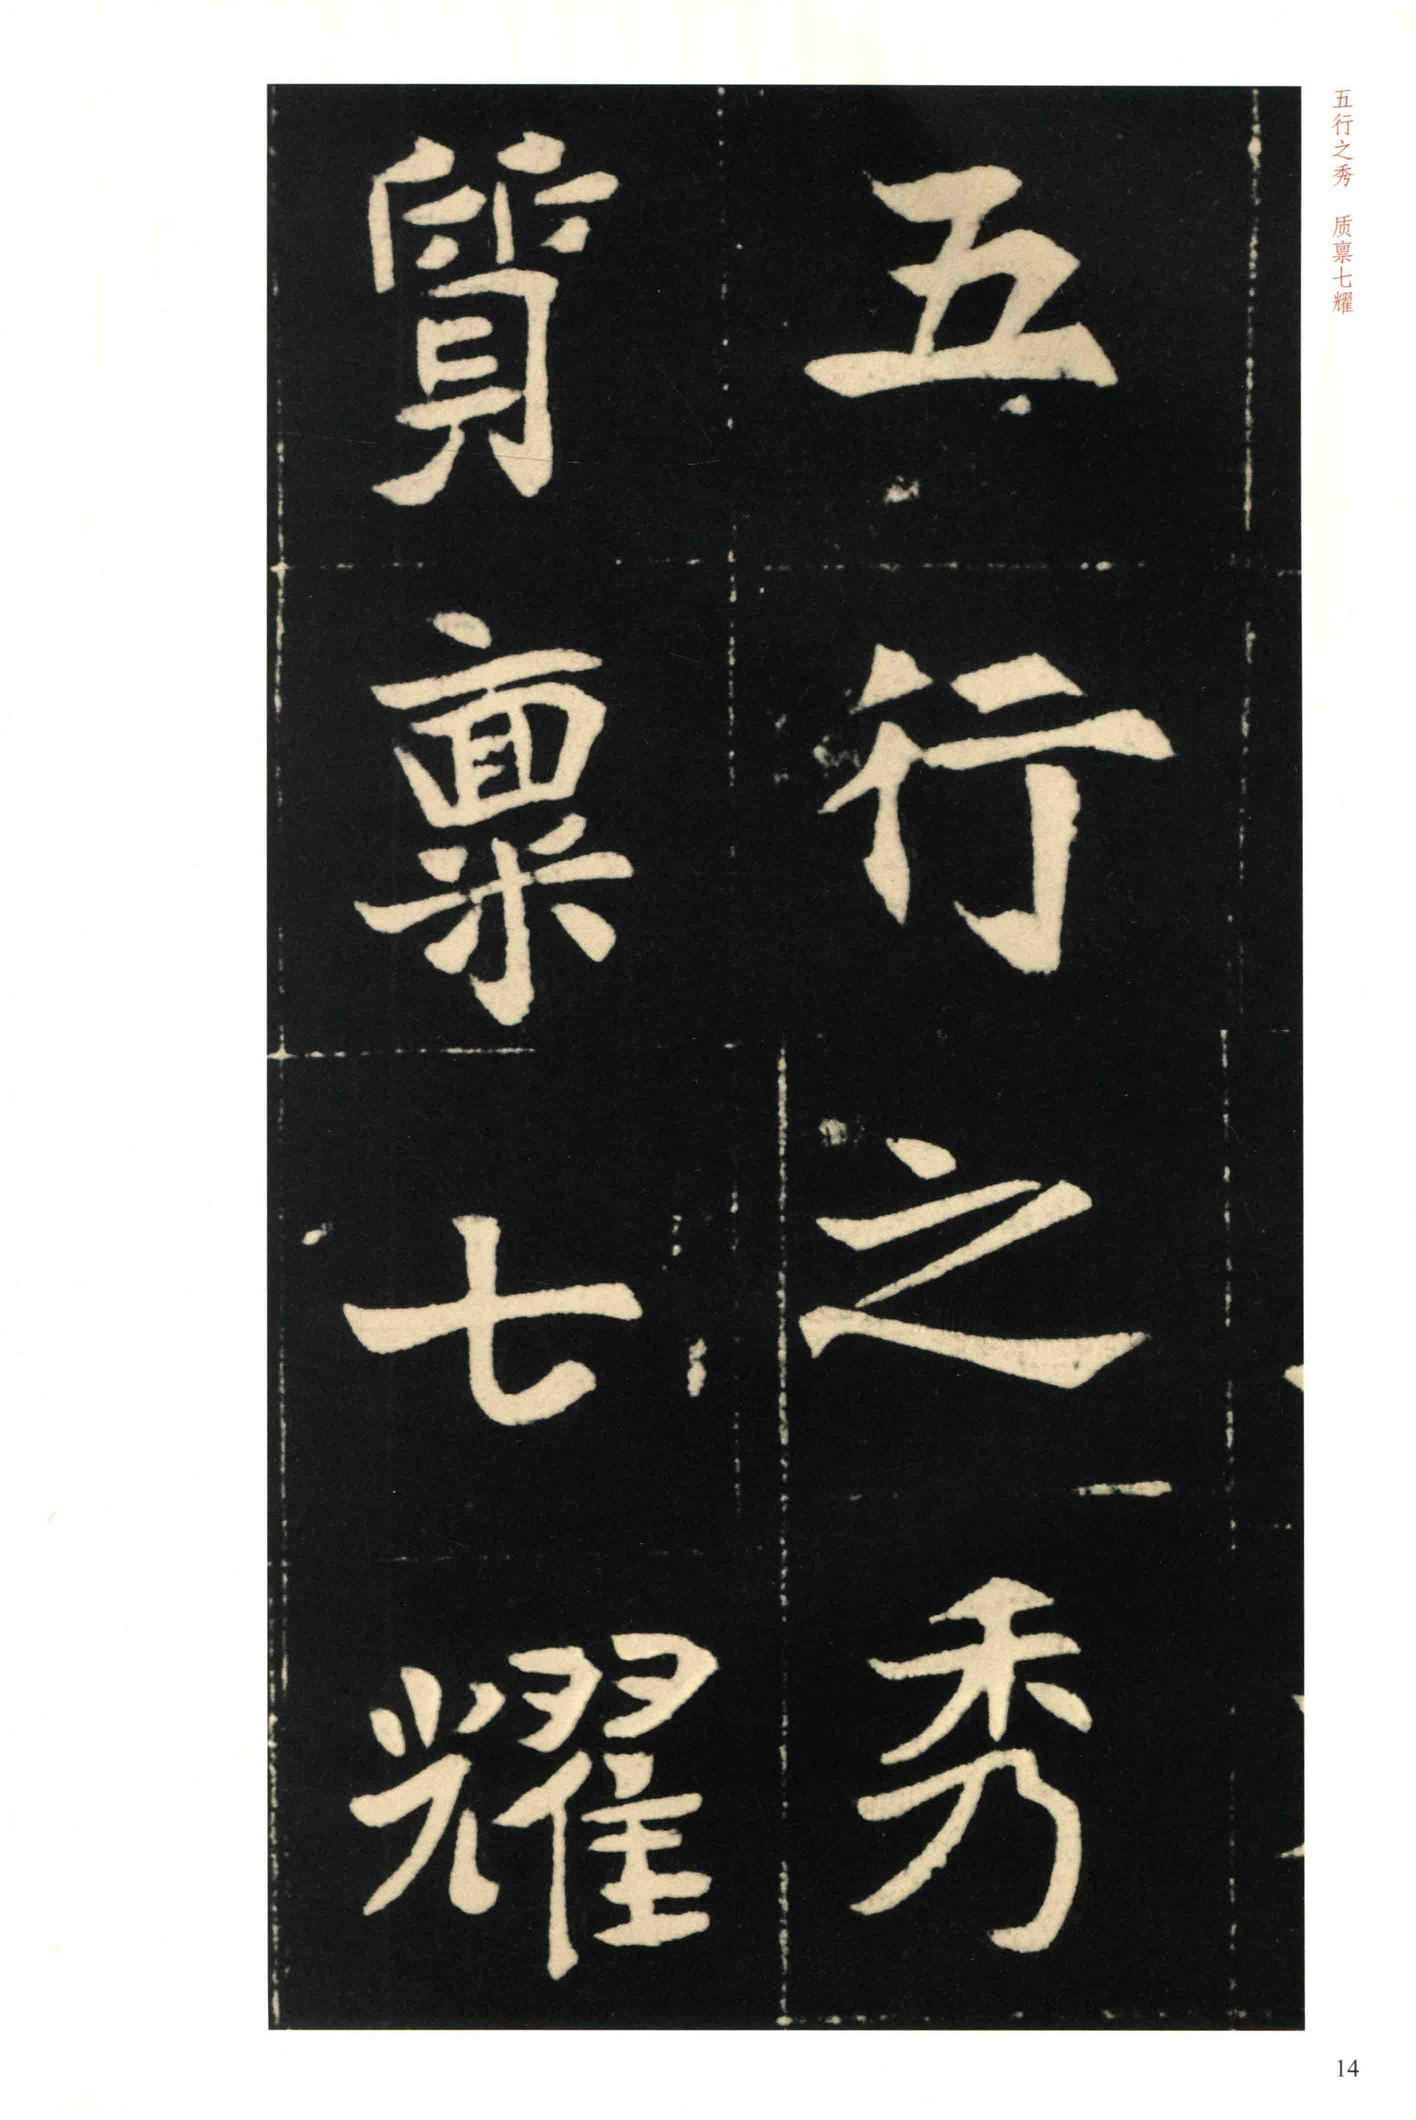 五行之秀
質稟七耀
五行之秀　质禀七耀
14